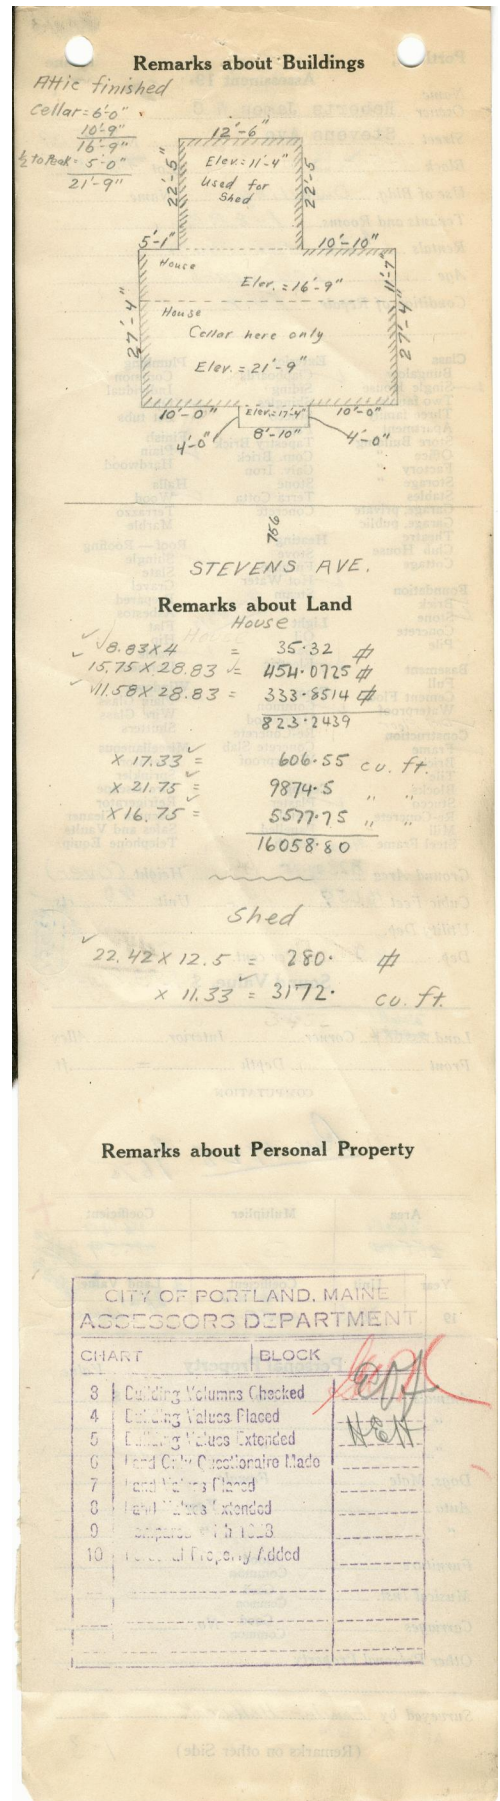 Remarks about Buildings
Attic finished
Cellar = 6'-0"
10'-9"
16'-9"
½ to Peak = 5'-0"
21'-9"
12'-6"
22'-5"
Elev: = 11'-4"
Used for
Shed
22'-5"
5'-1"
10'-10"
House
Elev. = 16'-9"
11'-7"
House
27'-4"
27'-4"
Cellar here only
Elev. = 21'-9"
10'-0"
Elev. = 17'-4"
10'-0"
4'-0"
8'-10"
4'-0"
756
STEVENS AVE.
Remarks about Land
House
8.83 X 4 = 35.32
15.75 X 28.83 = 454.0725
11.58 X 28.83 = 333.8514
823.2439
X 17.33 = 606.55 cu. ft.
X 21.75 = 9874.5 " "
X 16.75 = 5577.75 " "
16058.80
Shed
22.42 X 12.5 = 280.
X 11.33 = 3172. cu. ft.
Remarks about Personal Property
CITY OF PORTLAND, MAINE
ASSESSORS DEPARTMENT
CHART BLOCK
3 Building Volumns Checked
4 Building Values Placed
5 Building Values Extended
6 Land Only Questionaire Made
7 Land Values Placed
8 Land Values Extended
9
10 Personal Property Added
HEH